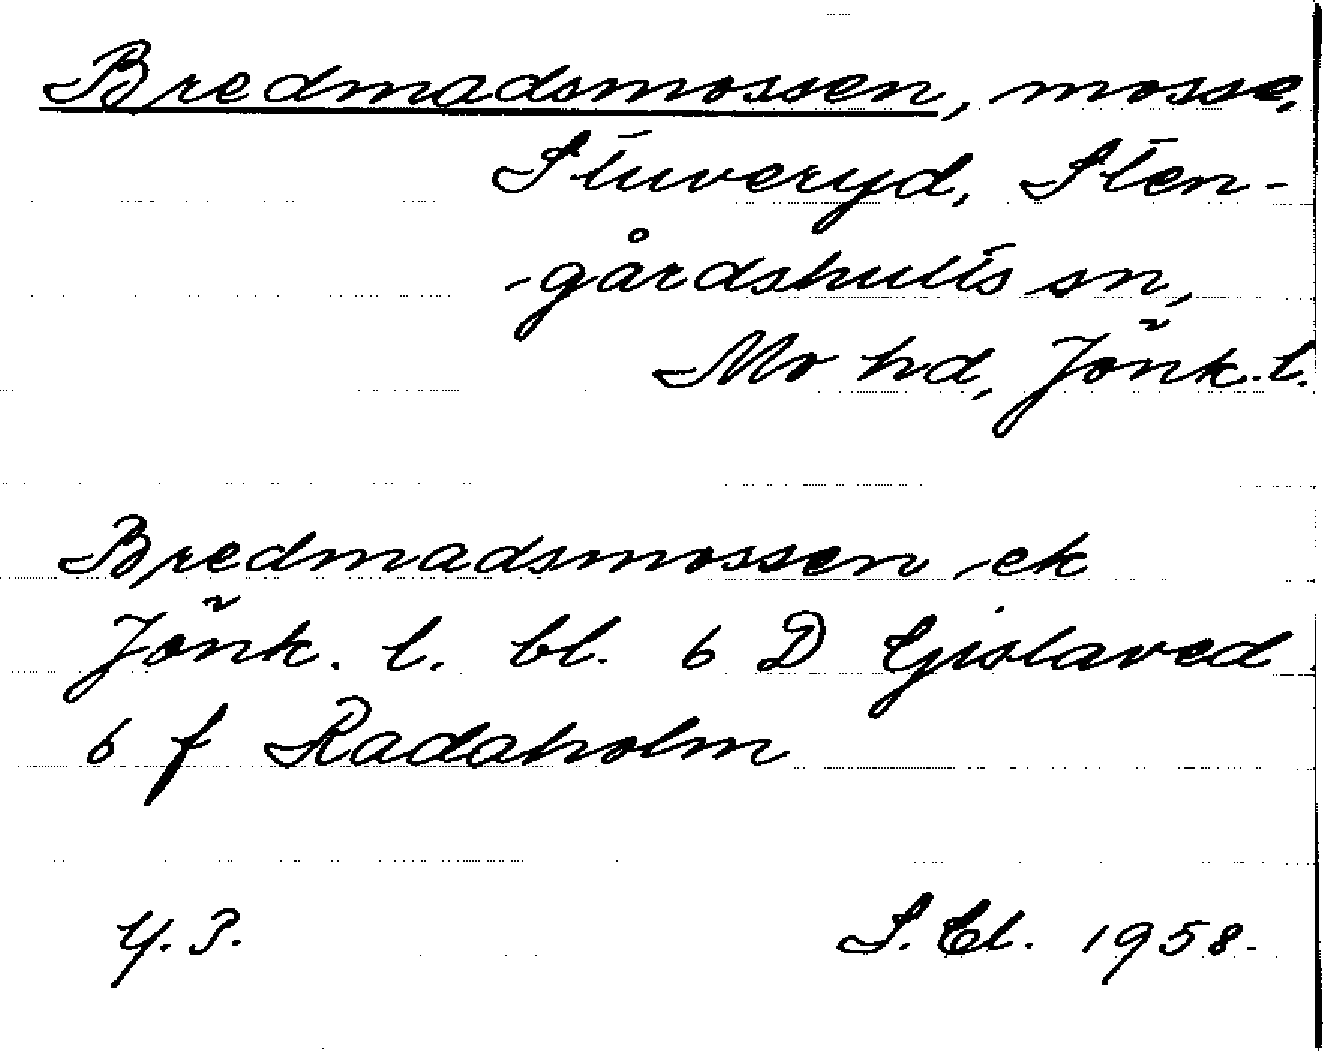 Bredmadsmossen, mosse,
Stuveryd, Sten-
-gårdshults sn,
Mo hd, Jönk. l.
Bredmadsmossen ek
Jönk. l. bl. 6 D Gislaved
6 f Radaholm
Y. P.
S. Cl. 1958.